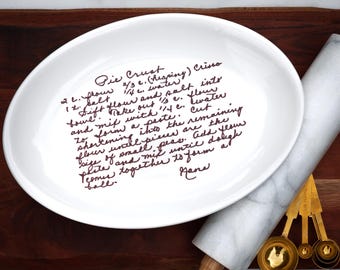 Pie Crust
2 c. flour 2/3 c. (rising) Crisco
1 t. salt 1/4 c. water
Sift flour and salt into
bowl. Take out 1/3 c. flour
and mix with 1/4 c. water
to form a paste. Cut
shortening into the remaining
flour until pieces are the
size of small peas. Add flour
paste and mix until dough
comes together to form a
ball. Nana